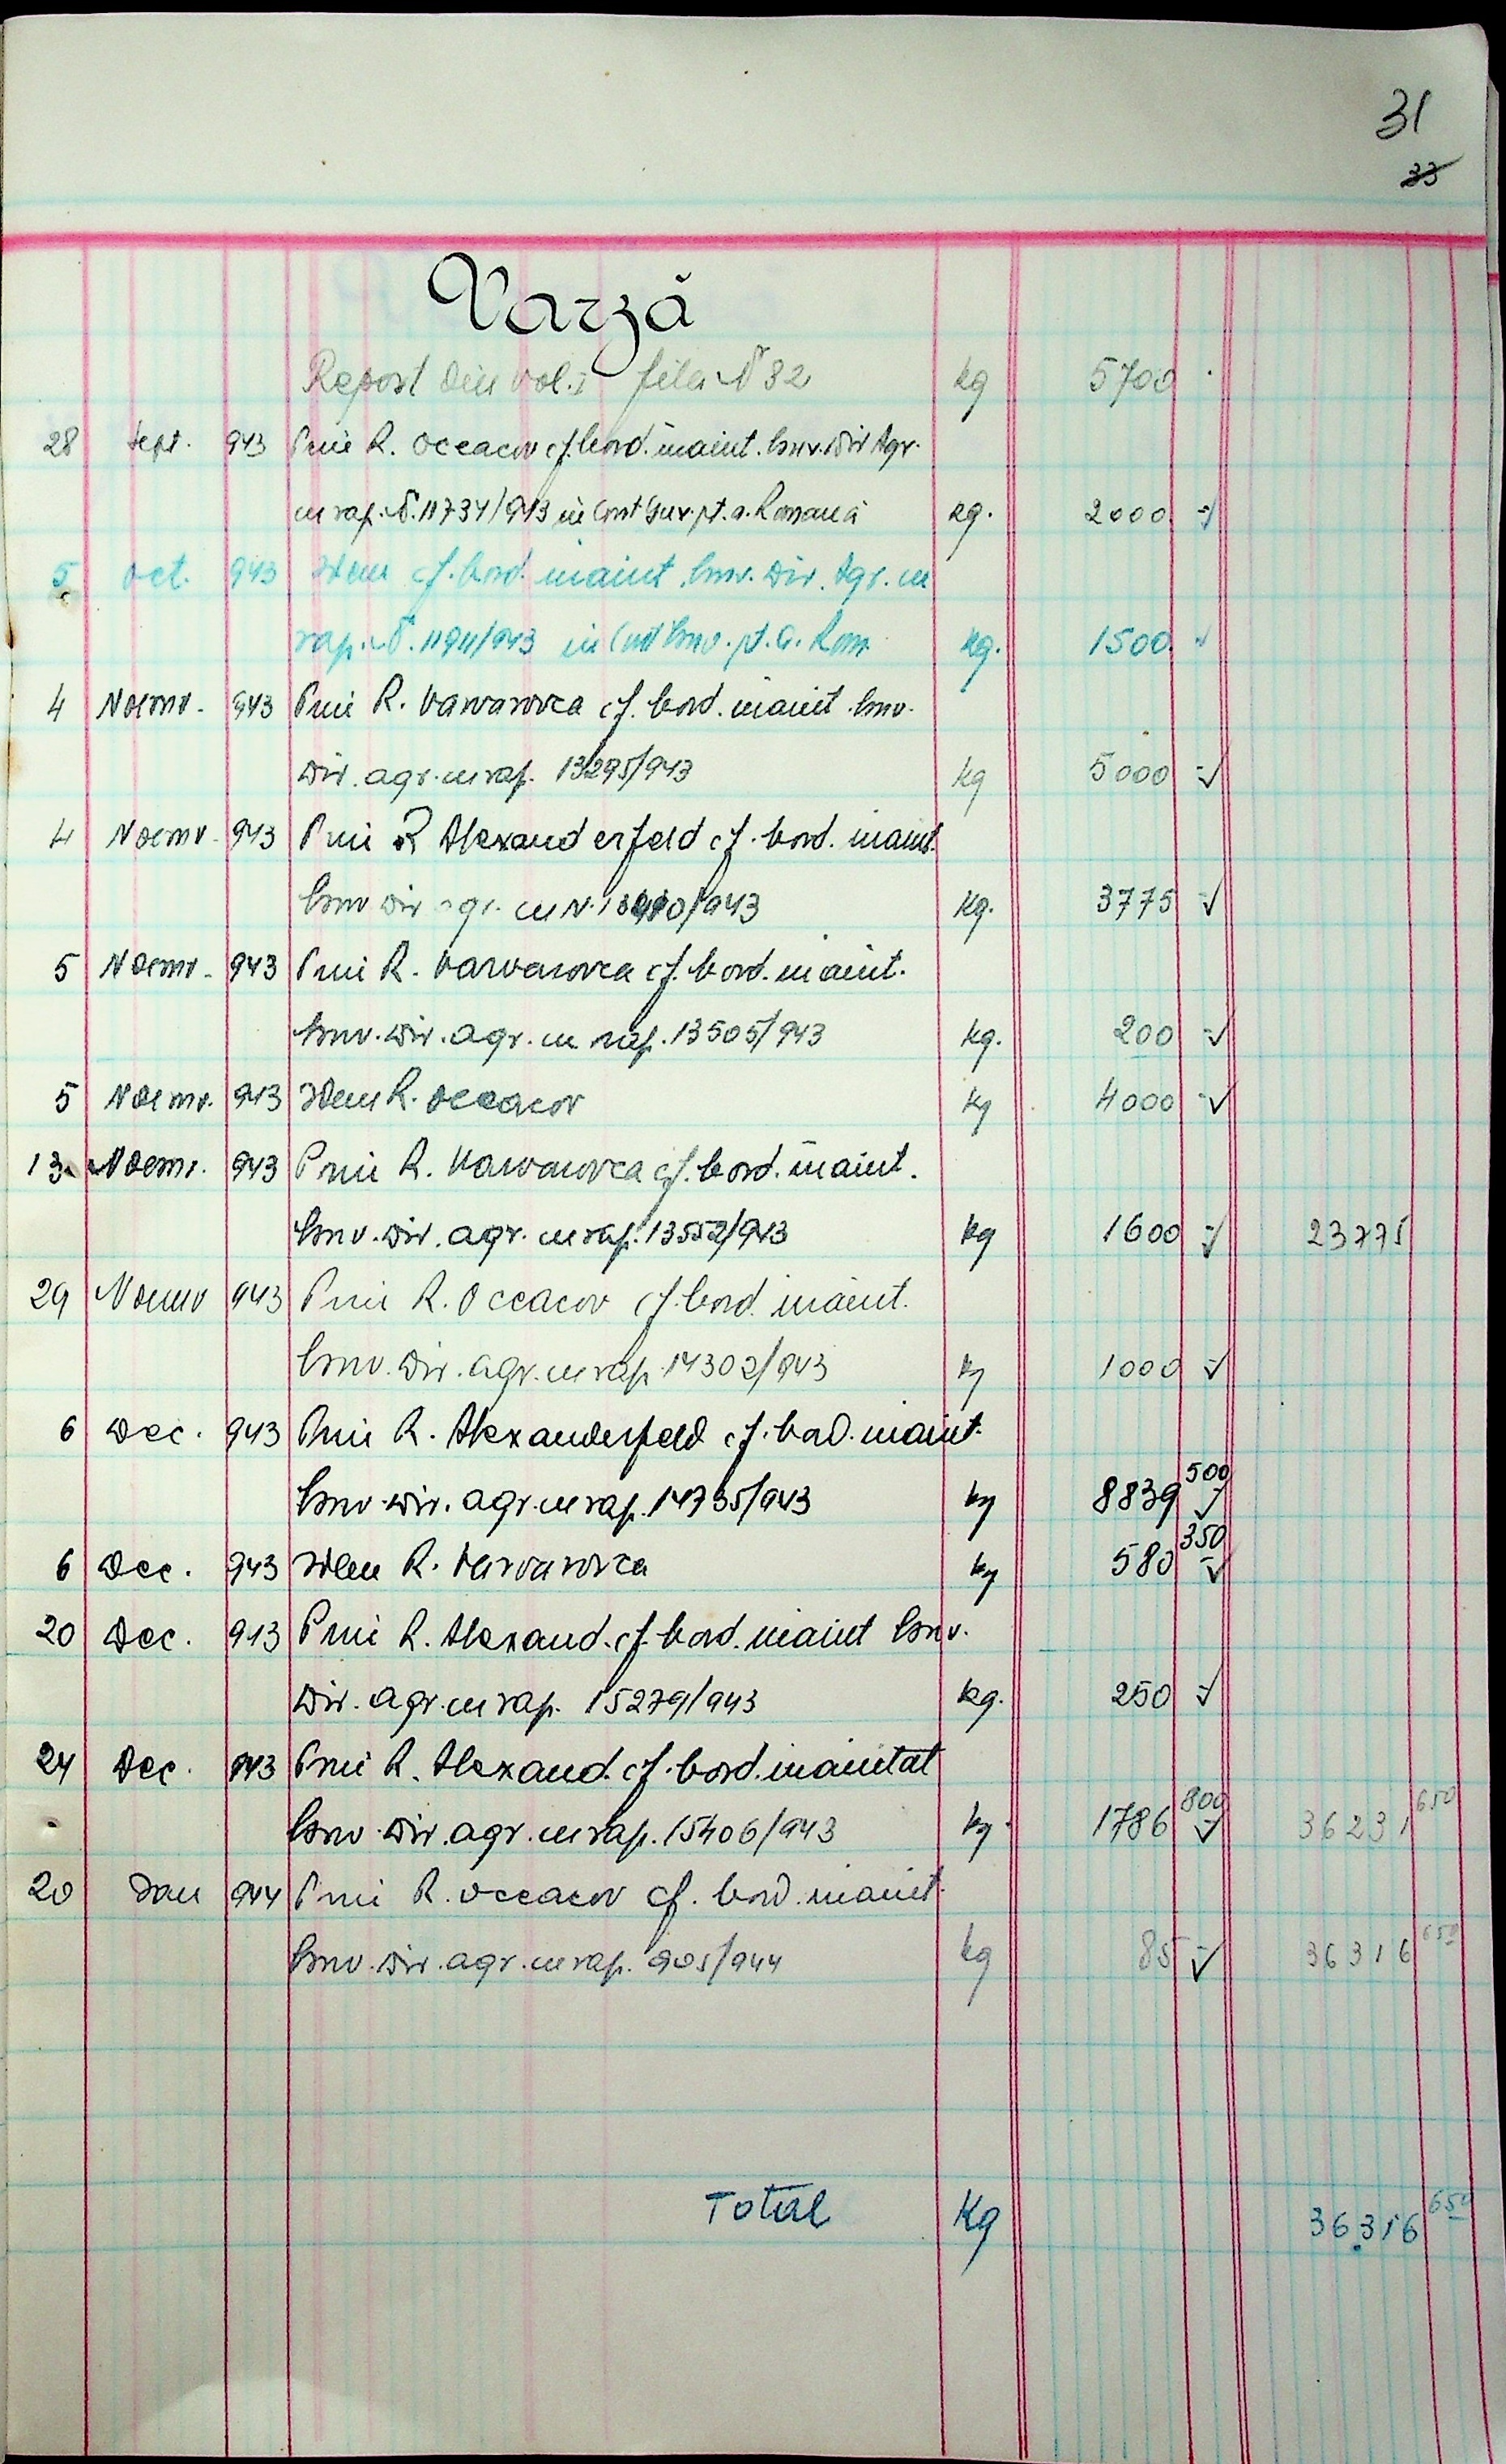 31
33
Varză
Report din vol. I fila № 32 kg 5700
28 Sept. 943 Prin R. Oceacov cf. bord. inaint. Guv. Dir Agr.
cu rap. №. 11734/943 in Cont Guv. pt. a. Romană kg. 2000 -√
5 Oct. 943 Idem cf. bord. inaint. Guv. Dir. Agr. cu
rap. №. 11911/943 in Cont Guv. pt. a. Rom. kg. 1500
4 Noemv. 943 Prin R. Varvarovca cf. bord. inaint. Guv.
Dir. agr. cu rap. 13295/943 kg 5000 -√
4 Noemv. 943 Prin R Alexanderfeld cf. bord. inaint.
Guv Dir agr. cu N. /943 kg. 3775 -√
5 Noemv. 943 Prin R. Varvarovca cf. bord. inaint.
Guv. Dir. agr. cu rap. 13505/943 kg. 200 -√
5 Noemv. 943 Idem R. Oceacov kg 4000 -√
13 Noemv. 943 Prin R. Varvarovca cf. bord. inaint.
Guv. Dir. agr. cu rap. 13552/943 kg 1600 -√ 23775
29 Noemv 943 Prin R. Oceacov cf. bord. inaint.
Guv. Dir. agr. cu rap. 14302/943 kg 1000 -√
6 Dec. 943 Prin R. Alexanderfeld cf. bord. inaint.
Guv. Dir. agr. cu rap. 14735/943 kg 8839 500 √
6 Dec. 943 Idem R. Varvarovca kg 580 350 √
20 Dec. 943 Prin R. Alexand. cf. bord. inaint Guv.
Dir. agr. cu rap. 15279/943 kg. 250 -√
24 Dec. 943 Prin R. Alexand. cf. bord. inaintat
Guv. Dir. agr. cu rap. 15406/943 kg. 1786 800 √ 36231 650
20 Ian 944 Prin R. Oceacov cf. bord. inaint.
Guv. Dir. agr. cu rap. 905/944 kg 85 -√ 36316 650
Total Kg 36.316 650